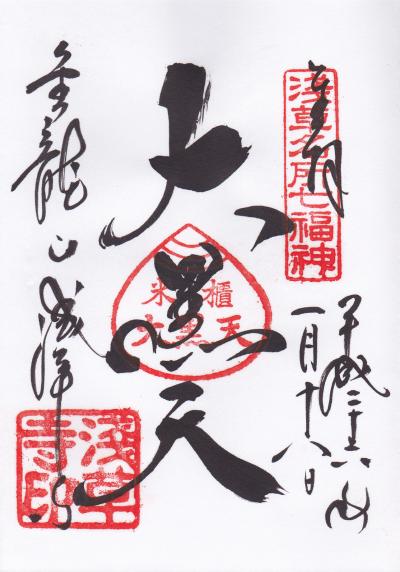 奉拝
浅草名所七福神
平成二十六年
一月十八日
大黒天
米櫃
大黒天
金龍山浅草寺
浅草寺印